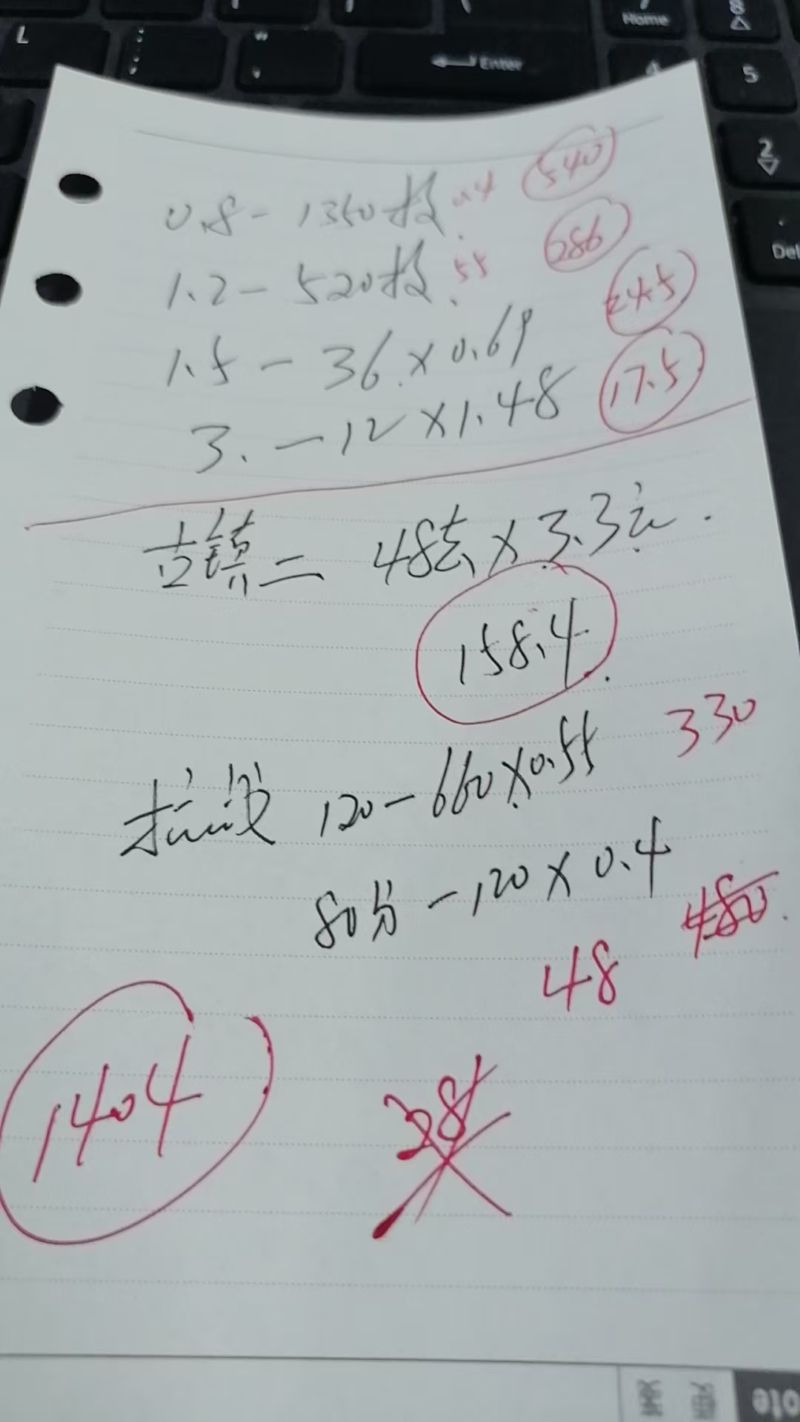 L
Enter
Home
8
5
2
Del
0.8－1350枚 0.4 540
1.2－520枚 .55 286
1.5－36×0.69 24.5
3.－12×1.48 17.5
古镇二 48套×3.3元.
158.4
抗战 120－660×0.55 330
80分－120×0.4
480
48
1404
ote